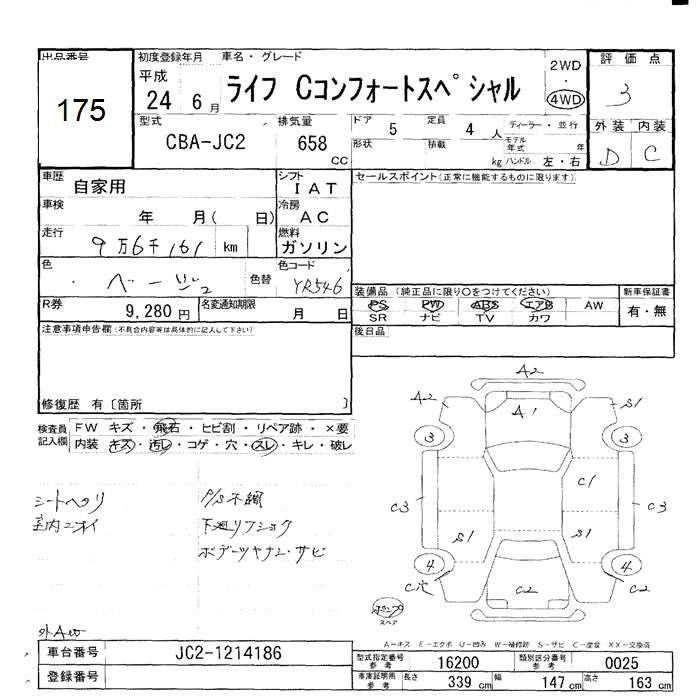 出品番号
175
初度登録年月
平成
24 6月
車名・グレード
ライフ Cコンフォートスペシャル
2WD
・
4WD
評価点
3
外装 内装
D C
型式
CBA-JC2
排気量
658
cc
ドア 5
定員 4 人
形状
積載 kg
ディーラー・並行
モデル年式 年
ハンドル 左・右
車歴
自家用
シフト
IAT
車検
年 月( 日)
冷房
AC
走行
9万6千161 km
燃料
ガソリン
色
ベージュ
色替
色コード
YR546
R券
9,280円
名変通知期限
月 日
セールスポイント(正常に機能するものに限ります)
装備品 (純正品に限り○をつけてください)
PS PW ABS エアB AW
SR ナビ TV カワ
新車保証書
有・無
後日品
注意事項申告欄(不具合内容等は具体的に記入して下さい)
修復歴 有〔箇所 〕
検査員
記入欄
FW キズ・飛石・ヒビ割・リペア跡・×要
内装 キズ・汚レ・コゲ・穴・スレ・キレ・破レ
シートヘタリ
室内ニオイ
下廻リフショク
ボデーツヤナシ・サビ
A2
A2
A1
S1
3
3
C1
C3
C3
S1
S1
4
4
C穴
C2
C2
スペア
A-キズ E-エクボ U-凹み W-補修跡 S-サビ C-腐食 XX-交換済
車台番号
JC2-1214186
登録番号
型式指定番号
参考
16200
類別区分番号
参考
0025
車庫証明用
参考
長さ 339 cm
幅 147 cm
高さ 163 cm